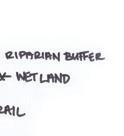 RIPARIAN BUFFER
WETLAND